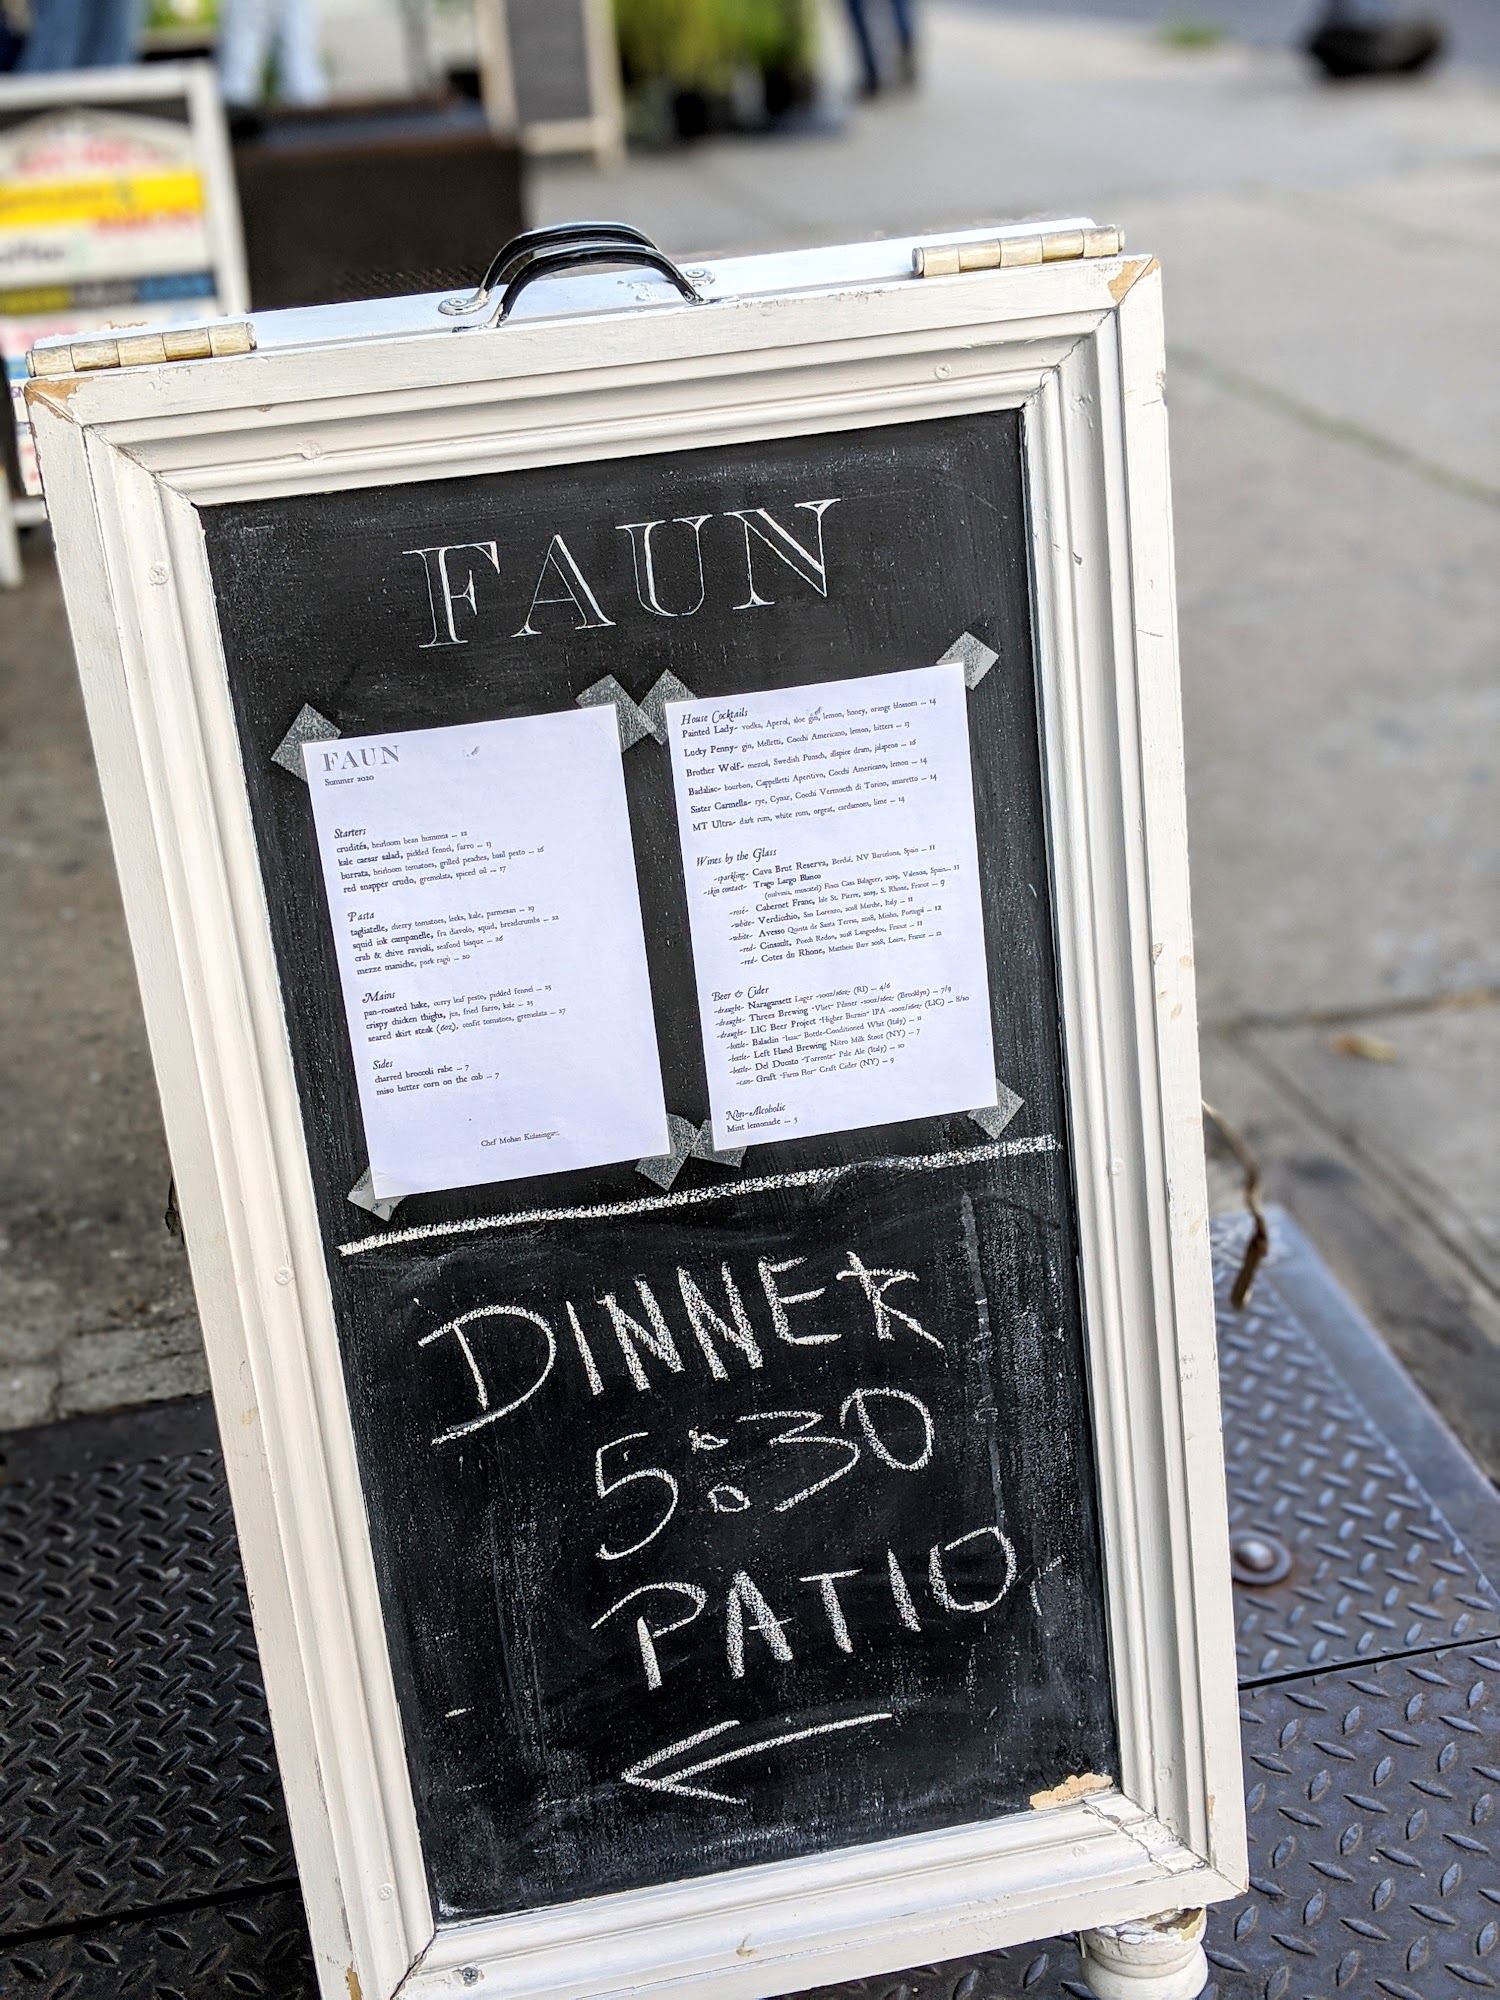 FAUN
FAUN
Summer 2020
Starters
crudités, heirloom bean hummus — 12
kale caesar salad, pickled fennel, farro — 13
burrata, heirloom tomatoes, grilled peaches, basil pesto — 16
red snapper crudo, gremolata, spiced oil — 17
Pasta
tagliatelle, cherry tomatoes, leeks, kale, parmesan — 19
squid ink campanelle, fra diavolo, squid, breadcrumbs — 22
crab & chive ravioli, seafood bisque — 26
mezze maniche, pork ragù — 20
Mains
pan-roasted hake, curry leaf pesto, pickled fennel — 25
crispy chicken thighs, jus, fried farro, kale — 25
seared skirt steak (6oz), confit tomatoes, gremolata — 27
Sides
charred broccoli rabe — 7
miso butter corn on the cob — 7
Chef Mohan
House Cocktails
Painted Lady- vodka, Aperol, sloe gin, lemon, honey, orange blossom — 14
Lucky Penny- gin, Melletti, Cocchi Americano, lemon, bitters — 13
Brother Wolf- mezcal, Swedish Punsch, allspice dram, jalapeno — 16
Badalisc- bourbon, Cappelletti Aperitivo, Cocchi Americano, lemon — 14
Sister Carmella- rye, Cynar, Cocchi Vermouth di Torino, amaretto — 14
MT Ultra- dark rum, white rum, orgeat, cardamom, lime — 14
Wines by the Glass
-sparkling- Cava Brut Reserva, Berdié, NV Barcelona, Spain — 11
-skin contact- Trago Largo Blanco
(malvasia, muscatel) Finca Casa Balaguer, 2019, Valencia, Spain—
-rosé- Cabernet Franc, Isle St. Pierre, 2019, S. Rhone, France — 9
-white- Verdicchio, San Lorenzo, 2018 Marche, Italy — 11
-white- Avesso Quinta de Santa Teresa, 2018, Minho, Portugal — 12
-red- Cinsault, Poech Redon, 2018 Languedoc, France — 11
-red- Cotes du Rhone, Matthein Barr 2018, Loire, France — 12
Beer & Cider
-draught- Naragansett Lager -10oz/16oz- (RI) — 4/6
-draught- Threes Brewing "Vliet" Pilsner -10oz/16oz- (Brooklyn) — 7/9
-draught- LIC Beer Project "Higher Burnin" IPA -10oz/16oz- (LIC) — 8/10
-bottle- Baladin "Isaac" Bottle-Conditioned Whit (Italy) — 11
-bottle- Left Hand Brewing Nitro Milk Stout (NY) — 7
-bottle- Del Ducato "Torrente" Pale Ale (Italy) — 10
-can- Graft "Farm Flor" Craft Cider (NY) — 9
Non-Alcoholic
Mint lemonade — 5
DINNER
5:30
PATIO